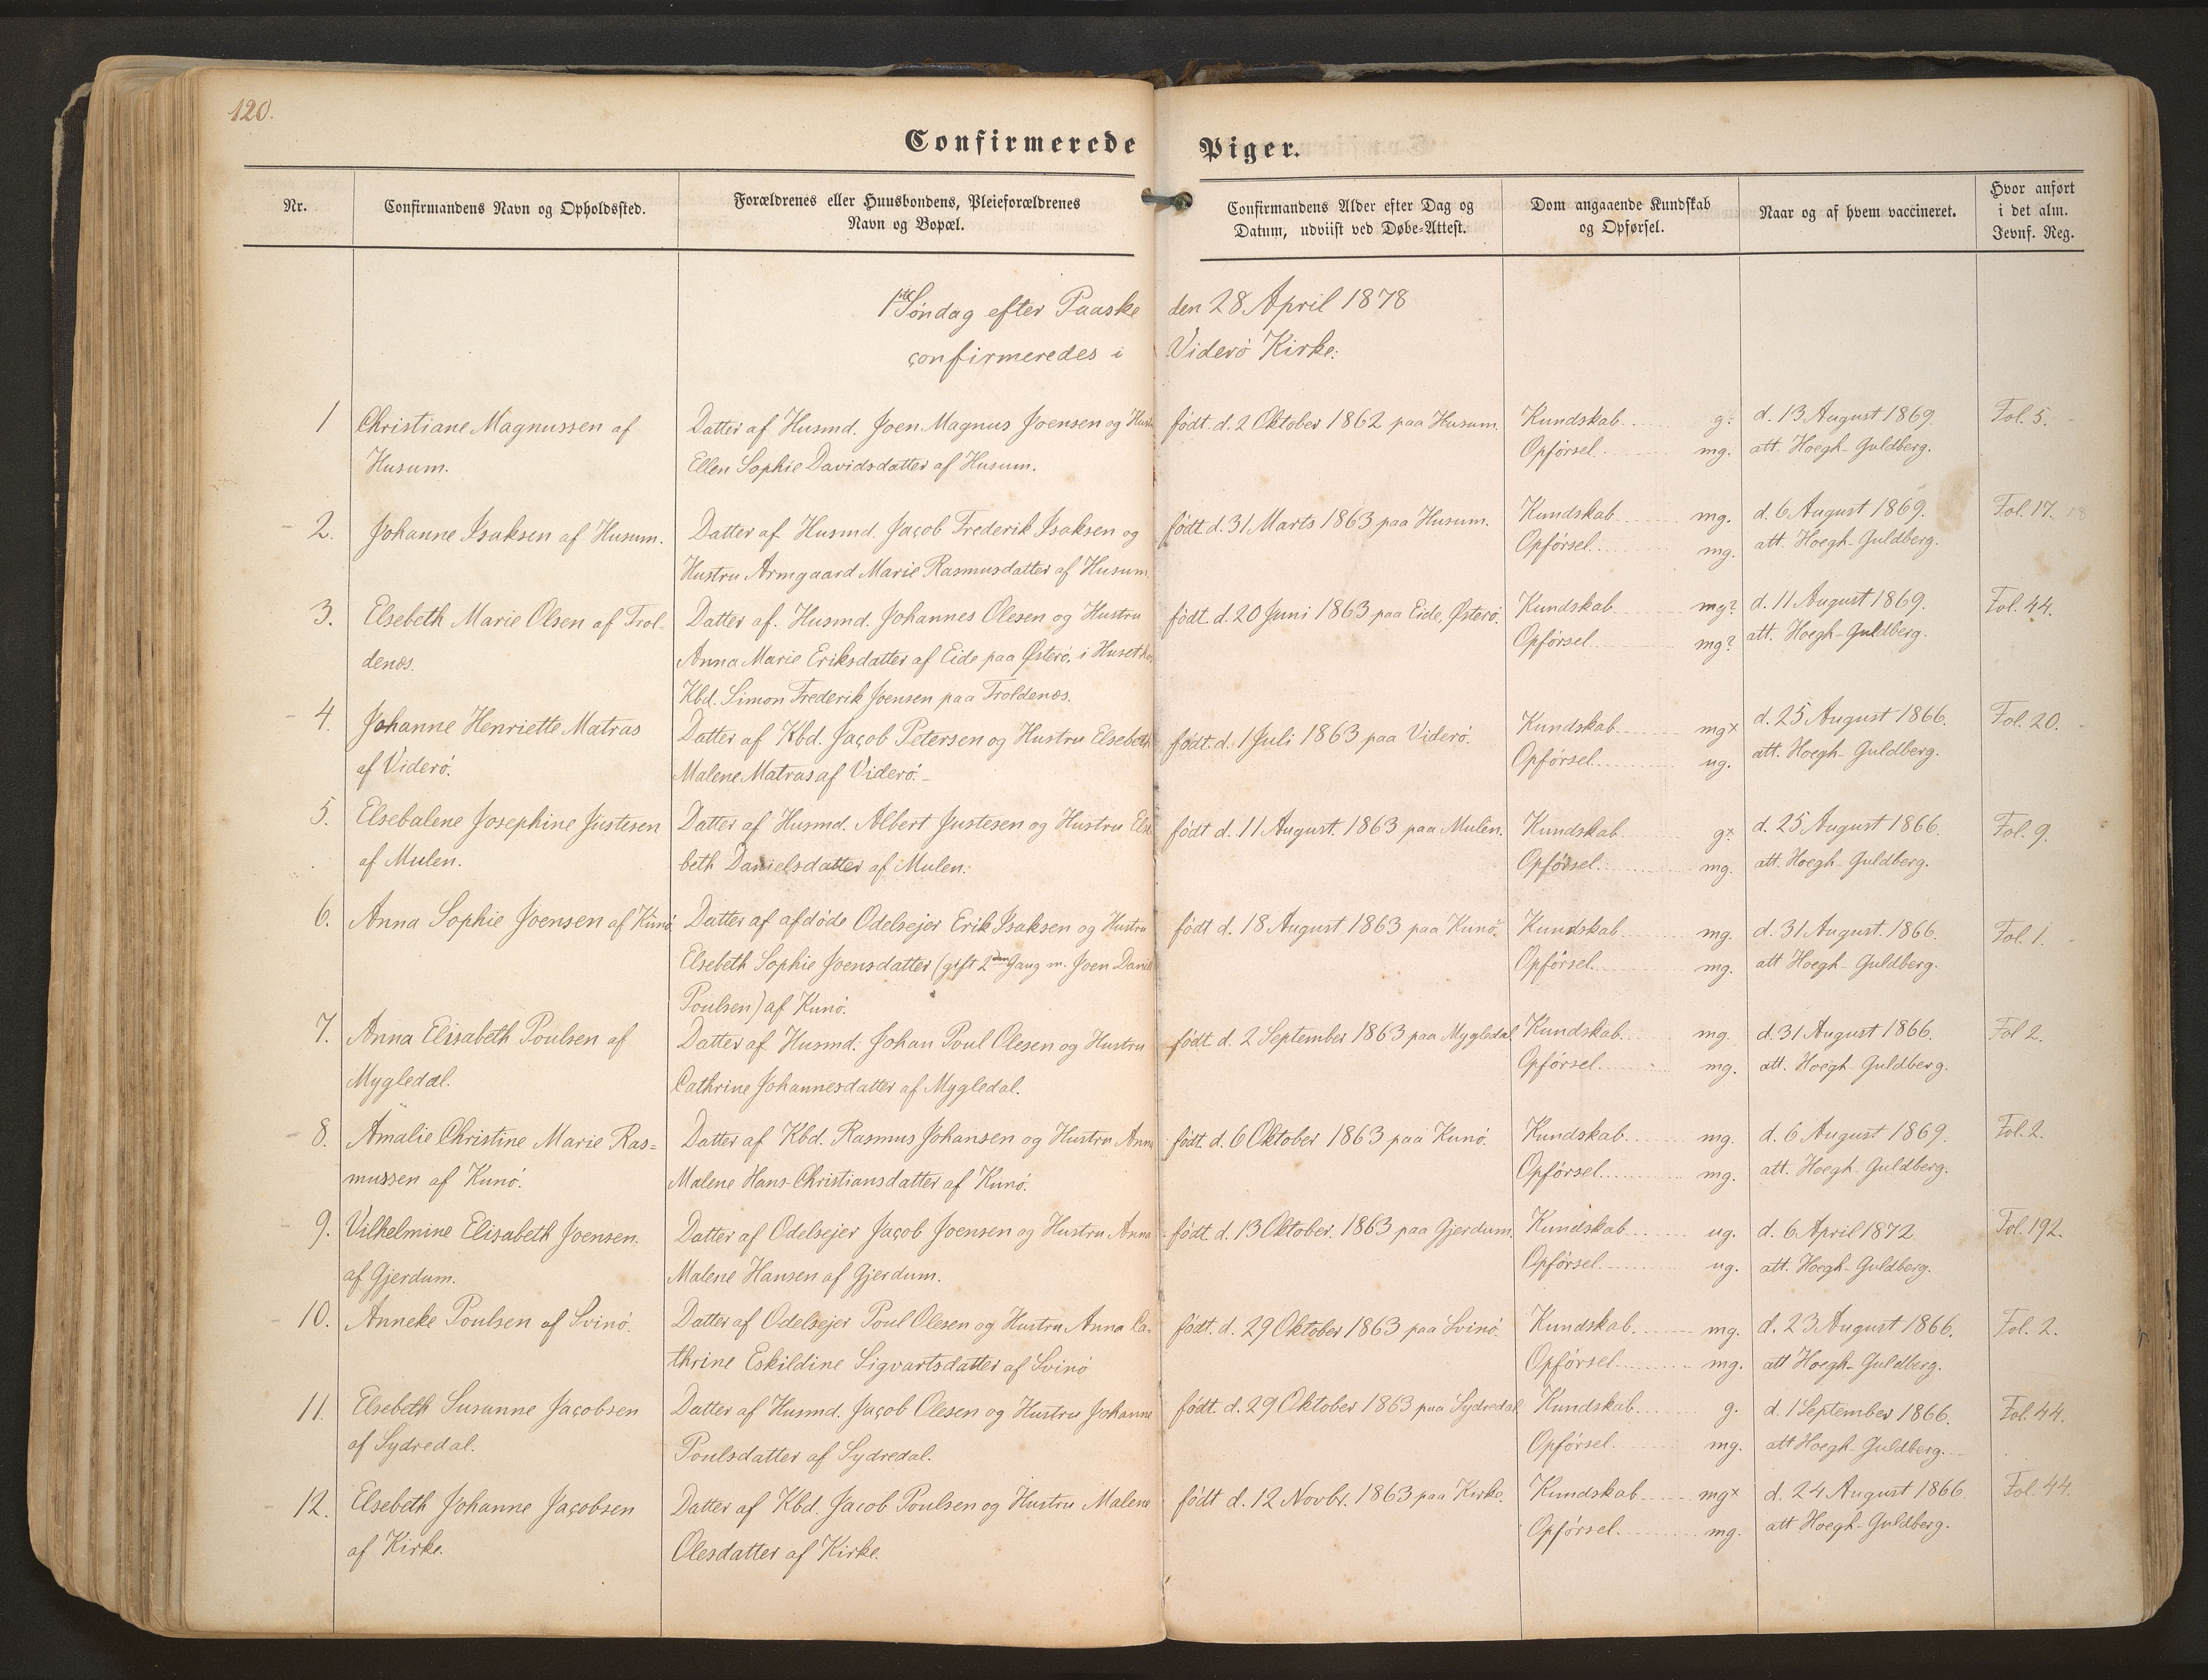 120.
Confirmerede Piger.
Nr.
Confirmandens Navn og Opholdssted.
Forældrenes eller Huusbondens, Pleieforældrenes
Navn og Bopæl.
Confirmandens Alder efter Dag og
Datum, udviist ved Døbe-Attest.
Dom angaaende Kundskab
og Opførsel.
Naar og af hvem vaccineret.
Hvor anført
i det alm.
Jevnf. Reg.
1ste Søndag efter Paaske den 28 April 1878
confirmeredes i Viderö Kirke:
1
Christiane Magnussen af
Husum.
Datter af Husmd. Joen Magnus Joensen og
Ellen Sophie Davidsdatter af Husum.
født d. 2 Oktober 1862 paa Husum.
Kundskab g:
Opförsel mg.
d. 13 August 1869.
att. Hoegh-Guldberg.
Fol. 5.
2.
Johanne Isaksen af Husum.
Datter af Husmd. Jacob Frederik Isaksen og
Hustru Armgaard Marie Rasmusdatter af Husum
født d. 31 Marts 1863 paa Husum.
Kundskab mg.
Opförsel mg.
d. 6 August 1869.
att. Hoegh-Guldberg.
Fol. 17. 18
3.
Elsebeth Marie Olsen af Trol-
denæs.
Datter af Husmd. Johannes Olesen og Hustru
Anna Marie Eriksdatter af Eide paa Østerö, i Huset hos
Kbd. Simon Frederik Joensen paa Troldenæs.
født d. 20 Juni 1863 paa Eide, Østerö.
Kundskab mg?
Opförsel mg?
d. 11 August 1869.
att. Hoegh-Guldberg.
Fol. 44.
4.
Johanne Henriette Matras
af Viderö.
Datter af Kbd. Jacob Petersen og Hustru Elsebeth
Malene Matras af Viderö.-
født d. 1 Juli 1863 paa Viderö.
Kundskab mgx
Opförsel ug.
d. 25 August 1866.
att. Hoegh-Guldberg.
Fol. 20.
5.
Elsebalene Josephine Justesen
af Mulen.
Datter af Husmd. Albert Justesen og Hustru Else
beth Danielsdatter af Mulen:
født d. 11 August. 1863 paa Mulen.
Kundskab gx
Opförsel mg.
d. 25 August 1866.
att. Hoegh-Guldberg.
Fol. 9.
6.
Anna Sophie Joensen af Kunö.
Datter af afdöde Odelsejer Erik Isaksen og Hustru
Elsebeth Sophie Joensdatter (gift 2den Gang m. Joen Daniel
Poulsen) af Kunö.
født d. 18 August 1863 paa Kunö.
Kundskab mg.
Opförsel mg.
d. 31 August. 1866.
att Hoegh-Guldberg.
Fol. 1.
7.
Anna Elisabeth Poulsen af
Mygledal.
Datter af Husmd: Johan Poul Olesen og Hustru
Cathrine Johannesdatter af Mygledal.
født d. 2 September 1863 paa Mygledal
Kundskab mg.
Opförsel mg.
d. 31 August 1866.
att. Hoegh-Guldberg.
Fol 2.
8.
Amalie Christine Marie Ras=
mussen af Kunö.
Datter af Kbd. Rasmus Johansen og Hustru Anna
Malene Hans-Christiansdatter af Kunö.
født d. 6 Oktober 1863 paa Kunö.
Kundskab mg.
Opförsel mg.
d. 6 August 1869.
att. Hoegh-Guldberg.
Fol. 2.
9.
Vilhelmine Elisabeth Joensen.
af Gjerdum.
Datter af Odelsejer Jacob Joensen og Hustru Anna
Malene Hansen af Gjerdum.
født d. 13 Oktober. 1863 paa Gjerdum.
Kundskab ug.
Opförsel ug.
d. 6 April 1872.
att. Hoegh-Guldberg.
Fol. 192.
10.
Anneke Poulsen af Svinö.
Datter af Odelsejer Poul Olesen og Hustru Anna Ca-
thrine Eskildine Sigvartsdatter af Svinö
født. d. 29 Oktober 1863 paa Svinö.
Kundskab mg.
Opförsel mg.
d. 23 August 1866.
att Hoegh-Guldberg.
Fol. 2.
11.
Elsebeth Susanne Jacobsen
af Sydredal.
Datter af Husmd. Jacob Olesen og Hustru Johanne
Poulsdatter af Sydredal.
født. d. 29 Oktober 1863 paa Sydredal
Kundskab g.
Opförsel mg.
d. 1 September 1866.
att Hoegh-Guldberg.
Fol. 44.
12.
Elsebeth Johanne Jacobsen
af Kirke.
Datter af Kbd. Jacob Poulsen og Hustru Malene
Olesdatter af Kirke.
født d. 12 Novbr. 1863 paa Kirke.
Kundskab mgx
Opförsel mg.
d. 24 August 1866
att Hoegh-Guldberg.
Fol. 44.